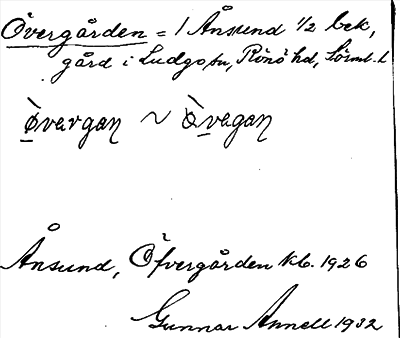 Övergården = 1 Ånsund 1/2 bek,
gård i Ludgo sn, Rönö hd, Södml. l
ø̀vərgan ~ ø̀vəgan
Ånsund, Öfvergården kb. 1926
Gunnar Annell 1932